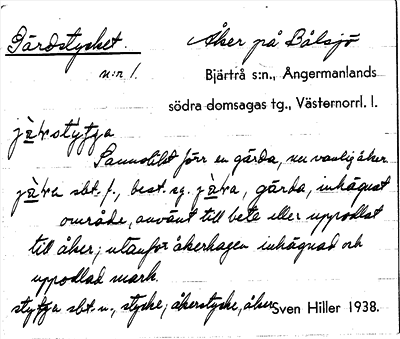 Gärdstycket. Åker på Bålsjö
n:r 1. Bjärtrå s:n., Ångermanlands
södra domsagas tg., Västernorrl. l.
Sannolikt förr en gärda, nu vanlig åker.
sbt. f., best. sg. gärda, inhägnat
område, använt till bete eller uppodlat
till åker; utanför åkerhagen inhägnad och
uppodlad mark.
sbt. n., stycke, åkerstycke, åker.
Sven Hiller 1938.